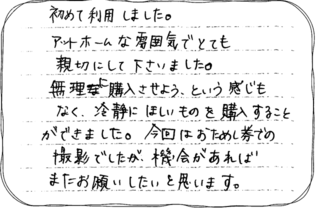 初めて利用しました。
アットホームな雰囲気でとても
親切にして下さいました。
無理に購入させよう、という感じも
なく、冷静にほしいものを購入すること
ができました。今回はおためし券での
撮影でしたが、機会があれば
またお願いしたいと思います。